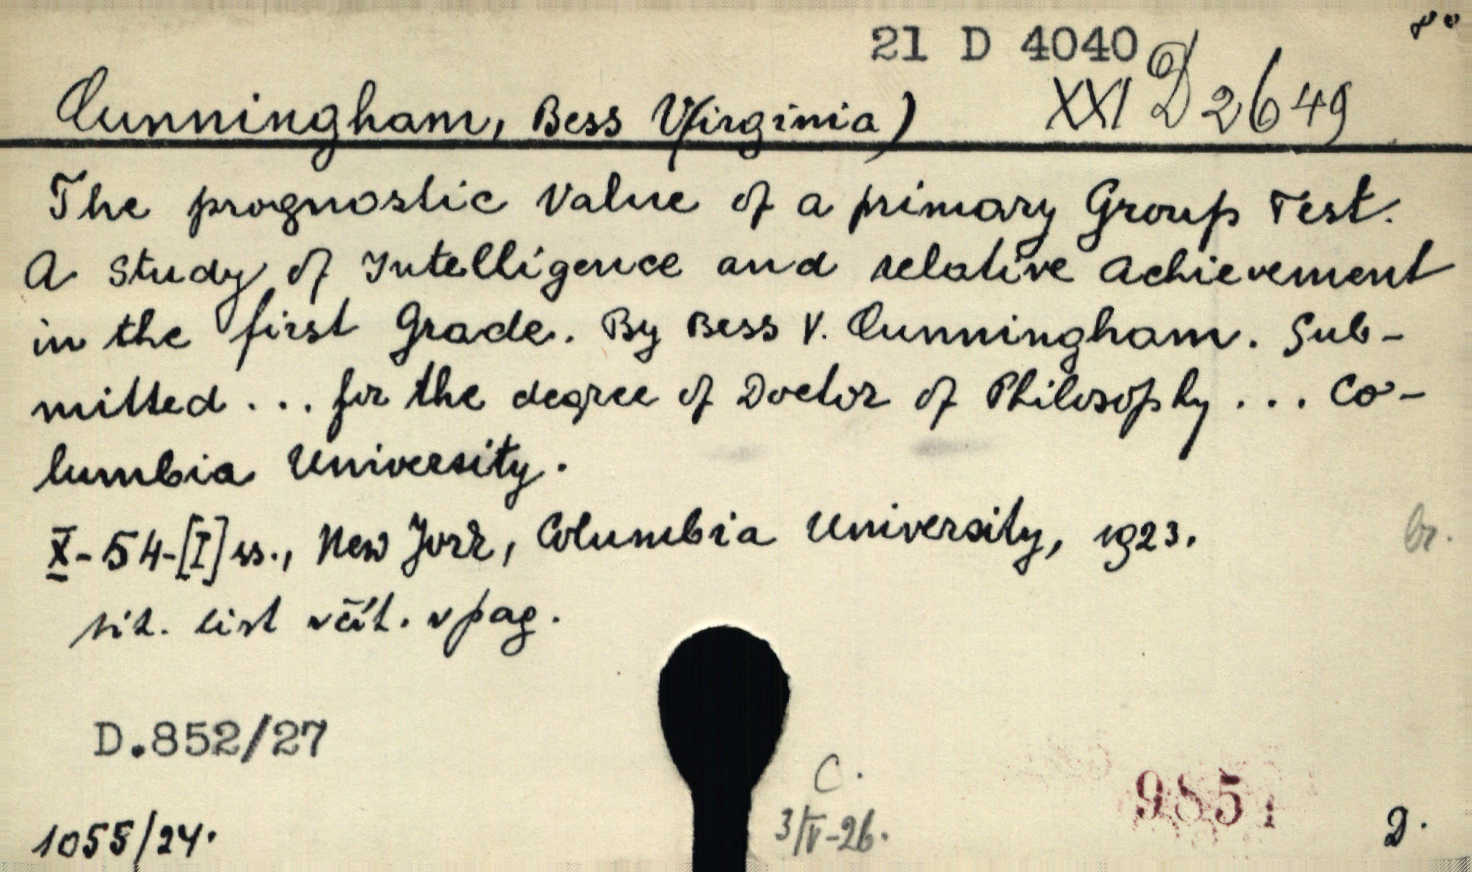 8°
21 D 4040
XXI D 2649
Cunningham, Bess V(irginia)
The prognostic Value of a primary Group Test.
A Study of Intelligence and relative Achievement
in the first Grade. By Bess V. Cunningham. Sub-
mitted... for the degree of Doctor of Philosophy... Co-
lumbia University.
X-54-[I] ss., New York, Columbia University, 1923.
br.
tit. list včít. v pag.
D.852/27
C.
985
3/V-26.
1055/24.
D.